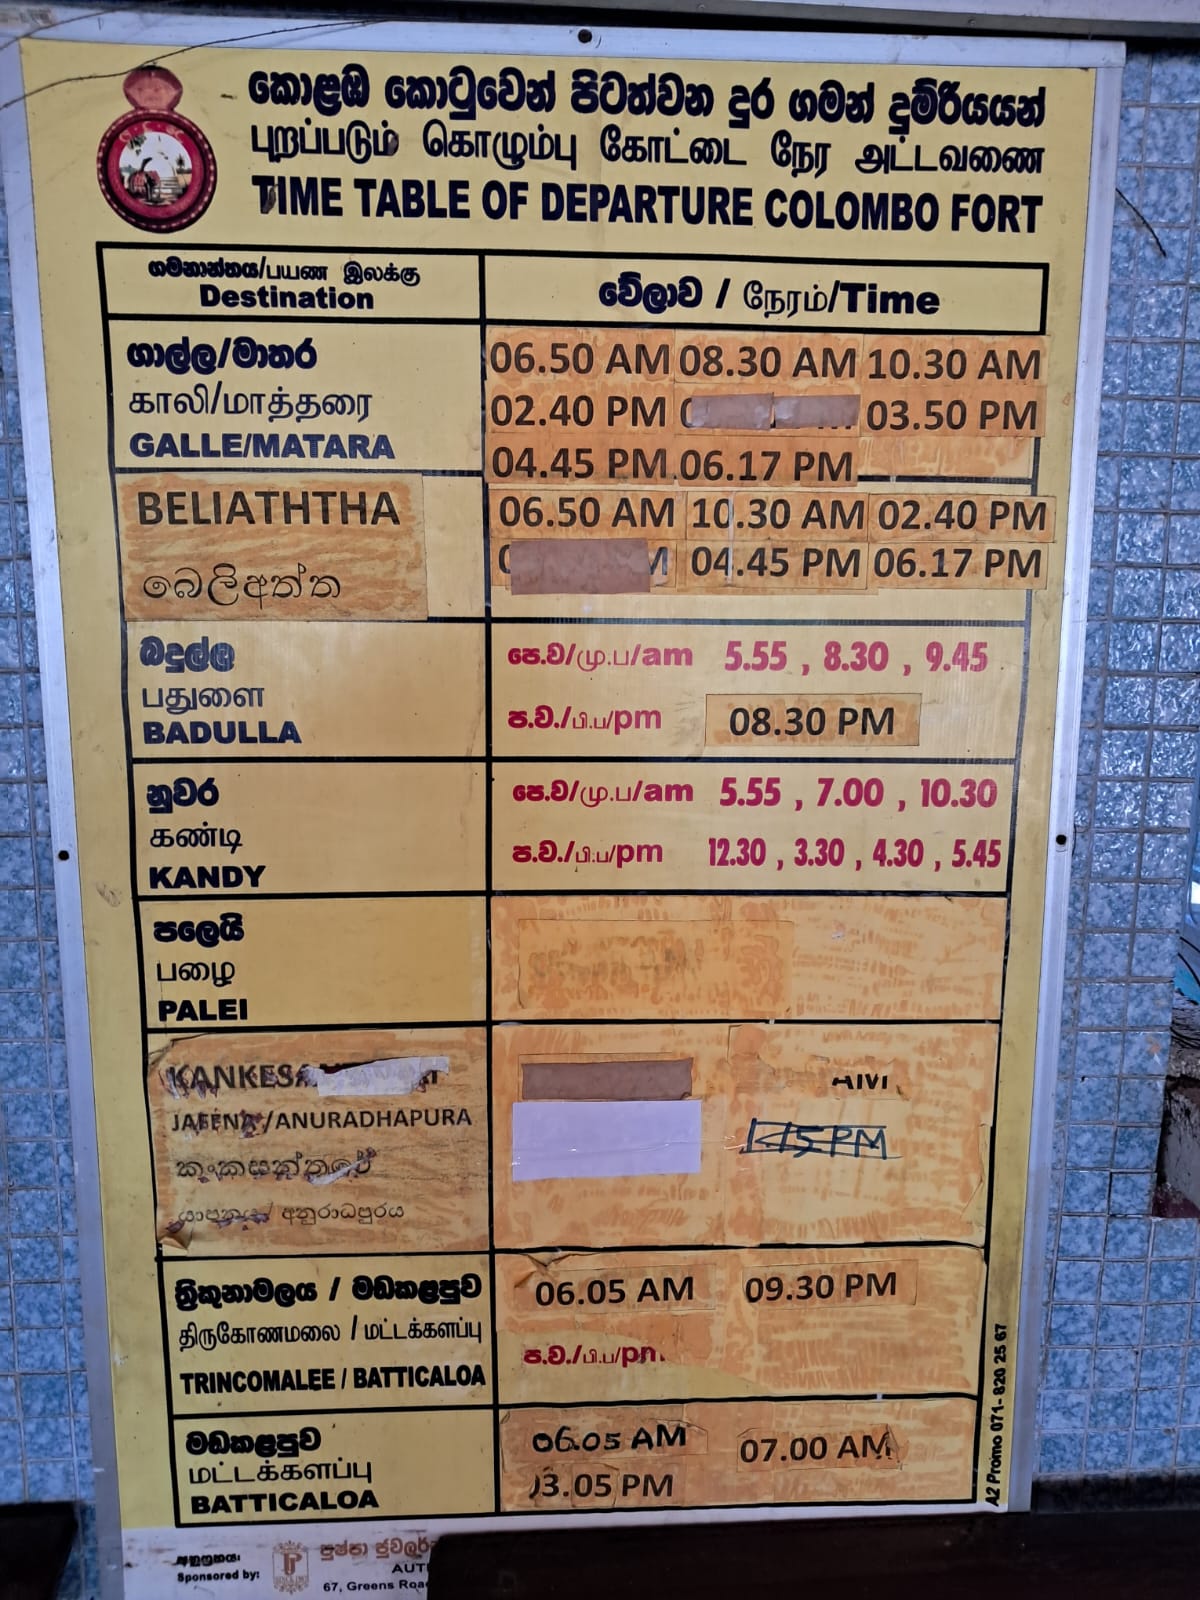 කොළඹ කොටුවෙන් පිටත්වන දුර ගමන් දුම්රියයන්
புறப்படும் கொழும்பு கோட்டை நேர அட்டவணை
TIME TABLE OF DEPARTURE COLOMBO FORT
ගමනාන්තය/பயண இலக்கு
Destination
වේලාව / நேரம்/Time
ගාල්ල/මාතර
காலி/மாத்தறை
GALLE/MATARA
06.50 AM 08.30 AM 10.30 AM
02.40 PM 03.50 PM
04.45 PM 06.17 PM
BELIATHTHA
බෙලිඅත්ත
06.50 AM 10.30 AM 02.40 PM
04.45 PM 06.17 PM
බදුල්ල
பதுளை
BADULLA
පෙ.ව/மு.ப/am 5.55 , 8.30 , 9.45
ප.ව./பி.ப/pm 08.30 PM
නුවර
கண்டி
KANDY
පෙ.ව/மு.ப/am 5.55 , 7.00 , 10.30
ප.ව./பி.ப/pm 12.30 , 3.30 , 4.30 , 5.45
පලෙයි
பழை
PALEI
JAFFNA/ANURADHAPURA
යාපනය/ අනුරාධපුරය
AM
ත්‍රිකුනාමලය / මඩකළපුව
திருகோணமலை / மட்டக்களப்பு
TRINCOMALEE / BATTICALOA
06.05 AM 09.30 PM
ප.ව./பி.ப/pm
මඩකළපුව
மட்டக்களப்பு
BATTICALOA
06.05 AM 07.00 AM
03.05 PM
A2 Promo 071- 820 25 67
අනුග්‍රහය:
Sponsored by:
67, Greens Road